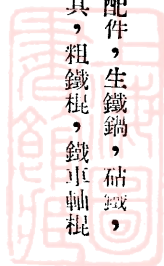 配件，生鐵鍋，砧鐵，
具，粗鐵棍，鐵車軸棍